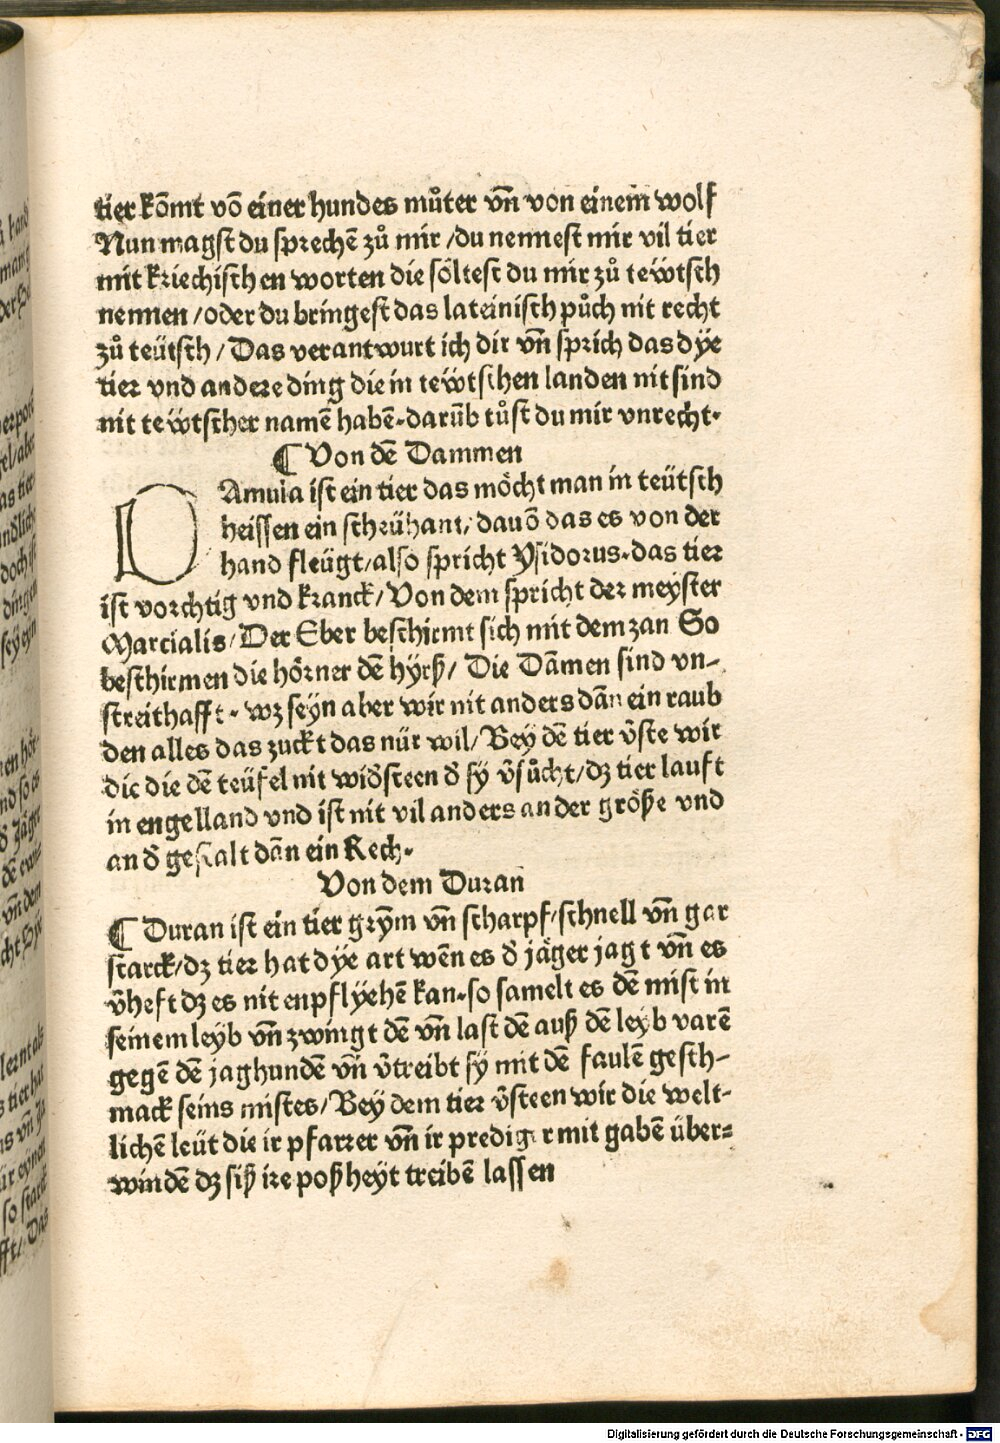 tier kōmt vō einer hundes můter vn̄ von einem wolf
Nun magst du sprechē zů mir /du nennest mir vil tier
mit kriechischen worten die söltest du mir zů tewtsch
nennen /oder du bringest das lateinisch půch nit recht
zů teütsch / Das verantwurt ich dir vn̄ sprich das dÿe
tier vnd andere ding die in tewtschen landen nit sind
nit tewtscher namē habē. darūb tůst du mir vnrecht.
¶ Von dē Dammen
DAmula ist ein tier das möcht man in teütsch
heissen ein schrühant/ dauō das es von der
hand fleügt/also spricht Ysidorus. das tier
ist vorchtig vnd kranck/ Von dem spricht der meyster
Marcialis/ Der Eber beschirmt sich mit dem zan So
beschirmen die hörner dē hÿrß/ Die Dāmen sind vn-
streithafft. wz seÿn aber wir nit anders dān ein raub
den alles das zuckt das nür wil/ Beÿ dē tier v̄ste wir
die die dē teüfel nit wiđsteen đ sÿ v̄sůcht/dz tier lauft
in engelland vnd ist nit vil anders an der größe vnd
an đ gestalt dān ein Rech.
Von dem Duran
¶ Duran ist ein tier grÿm vn̄ scharpf/schnell vn̄ gar
starck/dz tier hat dÿe art wēn es đ jäger jagt vn̄ es
v̄heft dz es nit enpflÿehē kan. so samelt es dē mist in
seinem leÿb vn̄ zwingt dē vn̄ last dē auß dē leyb varē
gegē dē jaghundē vn̄ v̄treibt sÿ mit dē faulē gesch-
mack seins mistes/ Beÿ dem tier v̄steen wir die welt-
lichē leüt die ir pfarrer vn̄ ir prediger mit gabē über=
windē dz siß ire poßheÿt treibē lassen
Digitalisierung gefördert durch die Deutsche Forschungsgemeinschaft - DFG